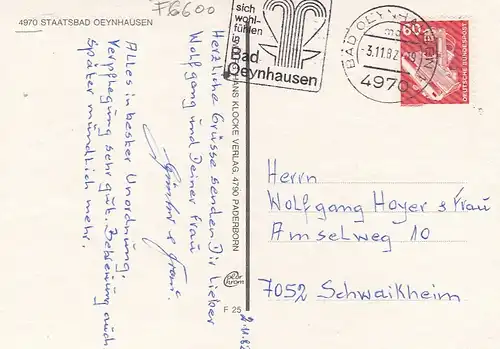 4970 STAATSBAD OEYNHAUSEN
F6600
sich
wohl-
fühlen
Bad
Oeynhausen
BAD OEYNHAUSEN
3.11.82
4970
60
DEUTSCHE BUNDESPOST
Herzliche Grüsse senden Dir lieber
Wolfgang und Deiner Frau
Günther & Frau.
Alles in bester Unordnung,
Verpflegung sehr gut. Bedienung auch
später mündlich mehr.
HANS KLOCKE VERLAG, 4790 PADERBORN
F 25
2.11.82
Herrn
Wolfgang Hoyer & Frau
Amselweg 10
7052 Schwaikheim